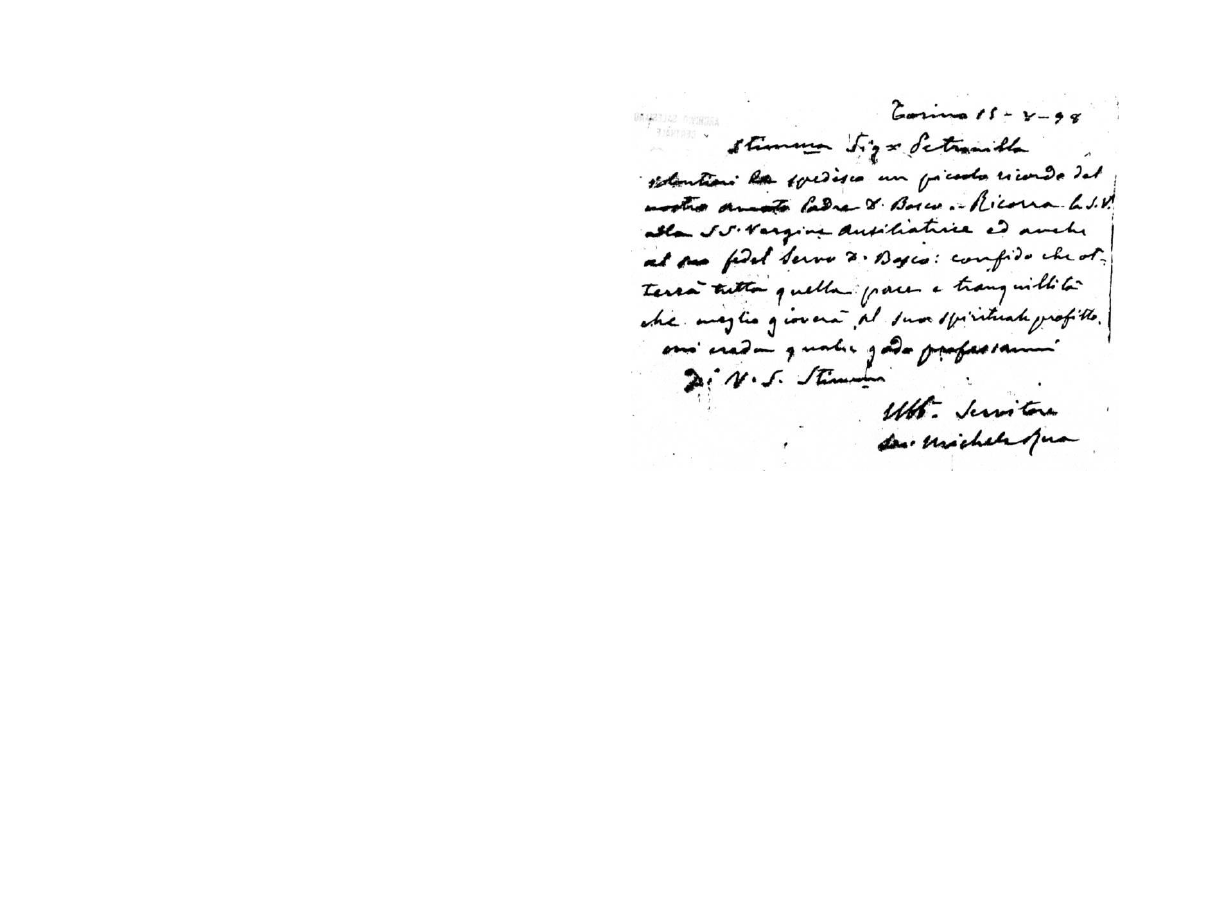 Torino 15-8-98
Stimma Sigra Petronilla
volontieri Le spedisco un piccolo ricordo del
nostro amato Padre D. Bosco. - Ricorra la S.V.
alla SS. Vergine Ausiliatrice ed anche
al suo fedel Servo D. Bosco: confido che ot-
terrà tutta quella pace e tranquillità
che meglio gioverà al suo spirituale profitto.
mi creda quale godo professarmi
Di V. S. Stimma
Obb. Servitore
Sac. Michele Rua